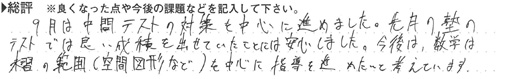 ▶総評 ※良くなった点や今後の課題などを記入して下さい。
9月は中間テストの対策を中心に進めました。先月の塾の
テストでは良い成績を出せていたことには安心しました。今後は、数学は
未習の範囲(空間図形など)を中心に指導を進めたいと考えています。